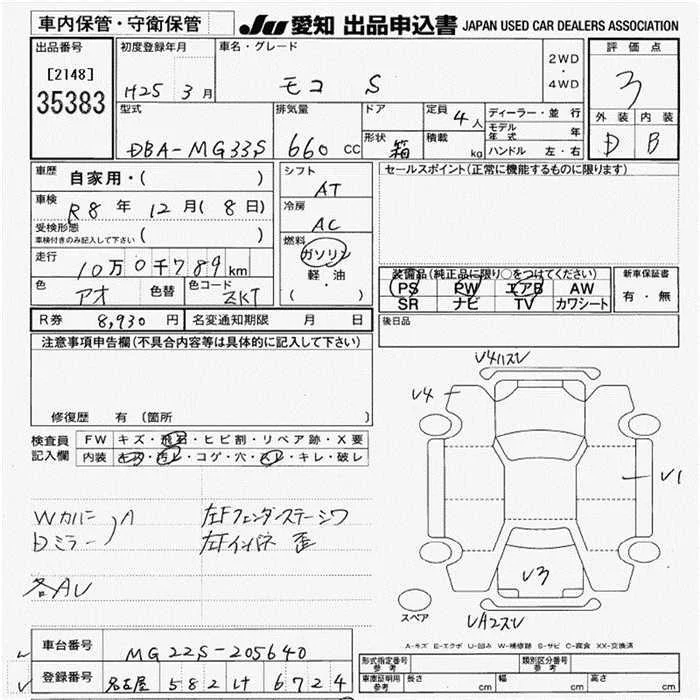 車内保管・守衛保管
JU 愛知 出品申込書 JAPAN USED CAR DEALERS ASSOCIATION
出品番号
[2148]
35383
初度登録年月
H25 3月
車名・グレード
モコ S
2WD
・
4WD
評価点
3
外装 内装
D B
型式
DBA-MG33S
排気量
660 CC
ドア
形状 箱
定員 4人
積載 kg
ディーラー・並行
モデル年式 年
ハンドル 左・右
車歴 自家用・( )
車検 R8年 12月(8日)
受検形態
車検付きのみ記入して下さい ( )
走行 10万0千789km
色 アオ 色替 色コード ZKT
シフト
AT
冷房
AC
燃料
ガソリン
軽・油
( ・ )
セールスポイント(正常に機能するものに限ります)
装備品(純正品に限り○をつけてください)
PS PW エアB AW
SR ナビ TV カワシート
新車保証書
有・無
R券 8,930円 名変通知期限 月 日
後日品
注意事項申告欄(不具合内容等は具体的に記入して下さい)
修復歴 有 (箇所 )
検査員
記入欄
FW キズ・飛石・ヒビ割・リペア跡・X要
内装 キズ・汚レ・コゲ・穴・スレ・キレ・破レ
Wカバー
Dミラー
A
左Fフェンダステーシワ
左Fインパネ 歪
各AU
V4ハスU
V4
V1
V3
VA2スU
スペア
A-キズ E-エクボ U-凹み W-補修跡 S-サビ C-腐食 XX-交換済
車台番号 MG22S-205640
登録番号 名古屋 582 け 6724
形式指定番号 参考
類別区分番号 参考
車庫証明用 参考 長さ cm 幅 cm 高さ cm